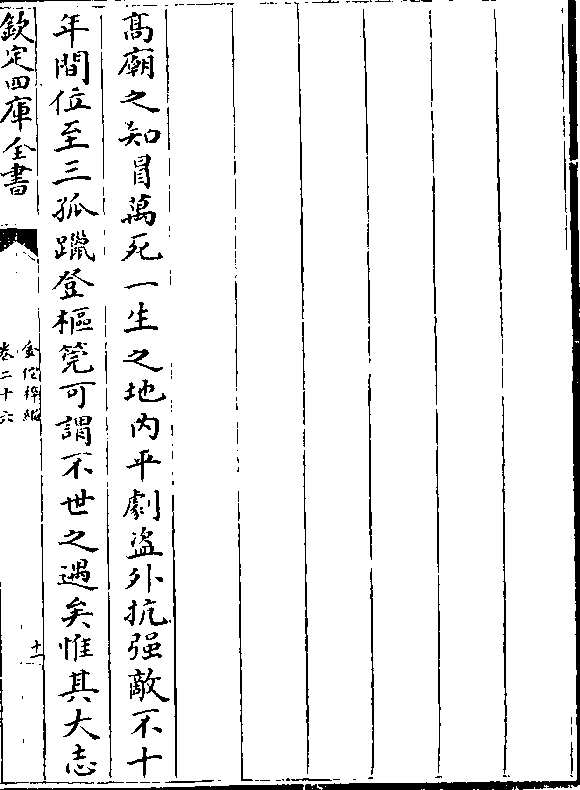 高廟之知冒萬死一生之地内平劇盜外抗强敵不十
年間位至三孤躐登樞筦可謂不世之遇矣惟其大志
欽定四庫全書
金佗稡編
卷二十六
十一